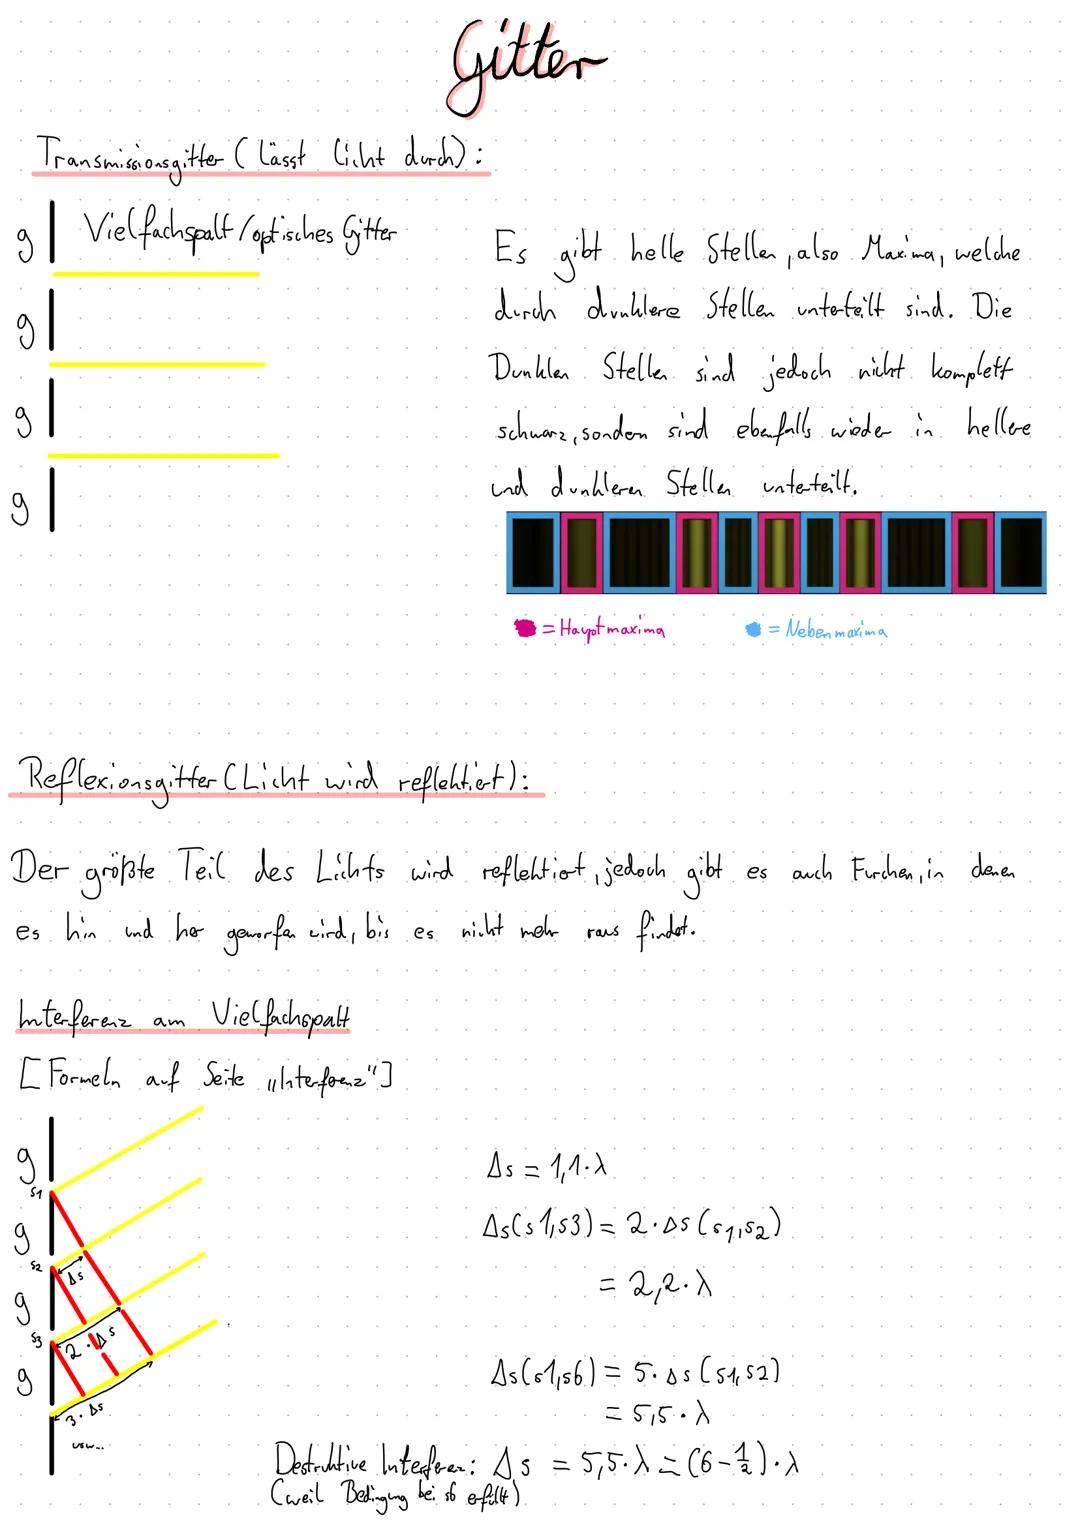 Gitter
Transmissionsgitter (Lässt Licht durch):
g
Vielfachspalt/optisches Gitter
g
g
g
Es gibt helle Stellen, also Maxima, welche
durch dunklere Stellen unterteilt sind. Die
Dunklen Stellen sind jedoch nicht komplett
schwarz, sondern sind ebenfalls wieder in hellere
und dunkleren Stellen unterteilt.
= Hauptmaxima
= Nebenmaxima
Reflexionsgitter (Licht wird reflektiert):
Der größte Teil des Lichts wird reflektiert, jedoch gibt es auch Furchen, in denen
es hin und her geworfen wird, bis es nicht mehr raus findet.
Interferenz am Vielfachspalt
[Formeln auf Seite „Interferenz"]
g
s1
g
s2
Δs
g
s3
2·Δs
g
3·Δs
usw...
Δs = 1,1·λ
Δs(s1,s3) = 2·Δs(s1,s2)
= 2,2·λ
Δs(s1,s6) = 5·Δs(s1,s2)
= 5,5·λ
Destruktive Interferenz: Δs = 5,5·λ = (6-½)·λ
(weil Bedingung bei s6 erfüllt)